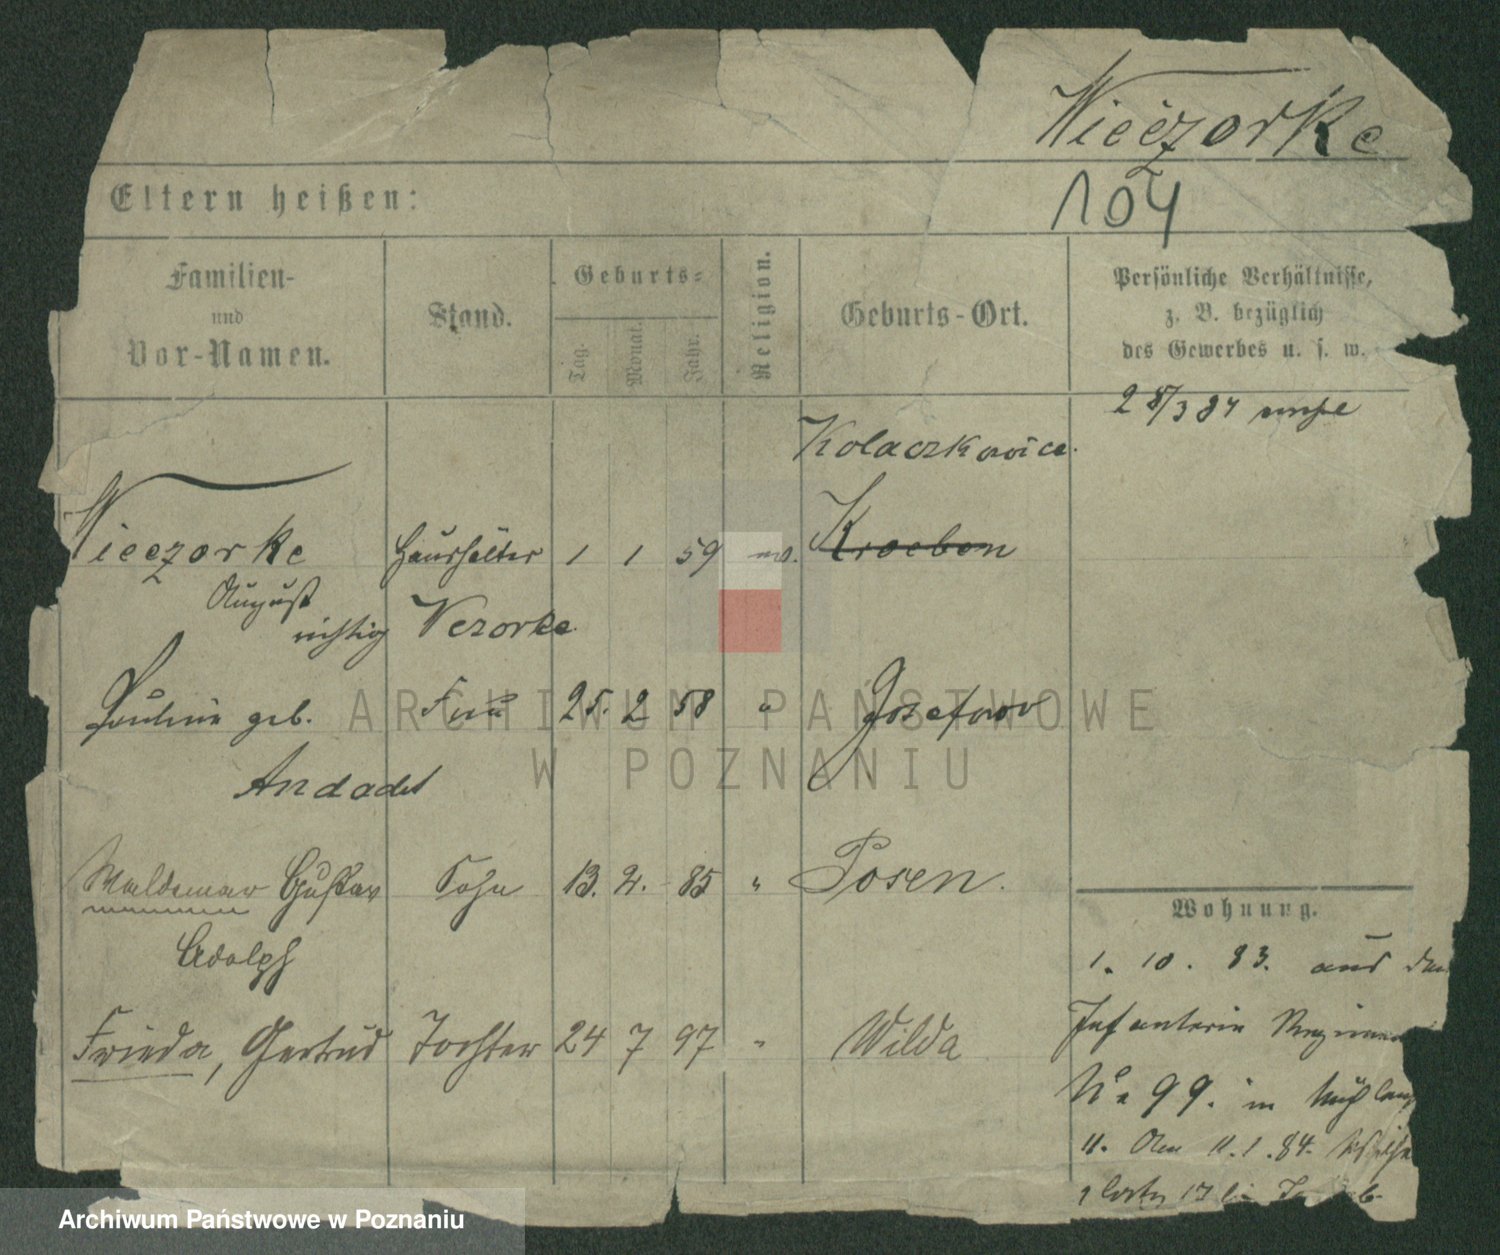 Wieczorke
104
Eltern heißen:
Familien-
und
Vor-Namen.
Stand.
Geburts-
Tag.
Monat.
Jahr.
Religion.
Geburts-Ort.
Persönliche Verhältnisse,
z. B. bezüglich
des Gewerbes u. s. w.
28/3 84
Kolaczkowice.
Wieczorke Haushälter 1 1 59 ev. Kroeben
August
richtig Wezorke
Pauline geb. Frau 25. 2 58 " Josefowo
Andadet
Waldemar Gustav Sohn 13. 2. 85 " Posen.
Adolph
Frieda, Gertrud Tochter 24 7 97 " Wilda
Wohnung.
1. 10. 83. aus dem
Infanterie Regiment
No 99. in
11. 1. 84.
17
ARCHIWUM PAŃSTWOWE
W POZNANIU
Archiwum Państwowe w Poznaniu